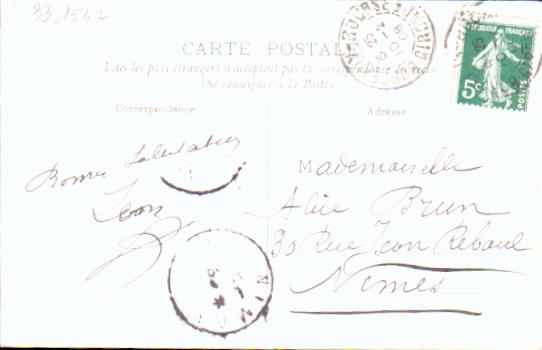 33 1542
CARTE POSTALE
Tous les pays étrangers n'acceptent pas la correspondance au recto
(Se renseigner à la Poste)
Correspondance
Adresse
Bonnes Salutations
Jean
Mademoiselle
Alice Brun
30 Rue Jean Reboul
Nimes
5c
POSTES